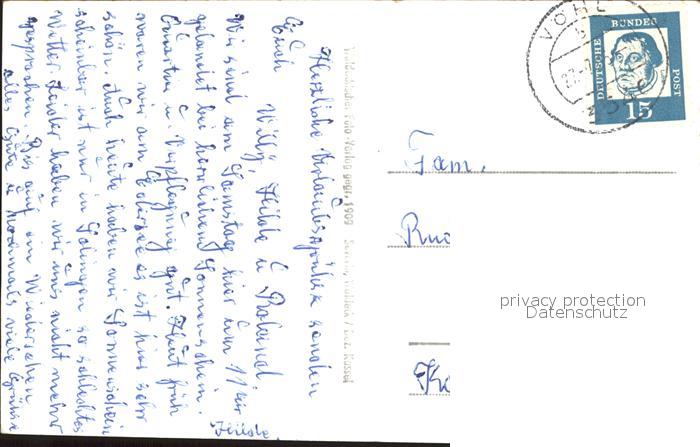 Herzliche Urlaubsgrüße senden
Euch Willy, Hilde u. Roland.
Wir sind am Samstag hier um 11 Uhr
gelandet bei herrlichem Sonnenschein.
Quartier u. Verpflegung gut. Heut früh
waren wir am Edersee es ist hier sehr
schön. Auch heute haben wir Sonnenschein
scheinbar ist nur in Solingen so schlechtes
Wetter. Leider haben wir uns nicht mehr
gesprochen. Bis auf ein Wiedersehen
alles Gute u. nochmals viele Grüße
Hilde.
Foto-Verlag gegr. 1909
Kassel
VÖHL
DEUTSCHE
BUNDES
POST
15
Fam.
privacy protection
Datenschutz